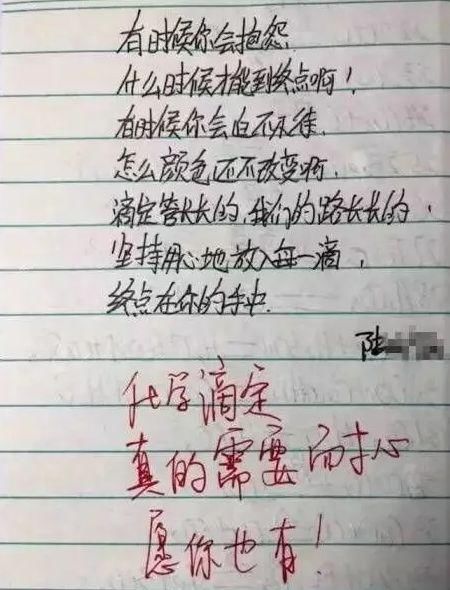 有时候你会抱怨
什么时候才能到终点啊!
有时候你会迫不及待,
怎么颜色还不改变啊,
滴定管长长的,我们的路长长的,
坚持用心地放入每一滴,
终点在你的手中.
陆
化学滴定
真的需要耐心
愿你也有!